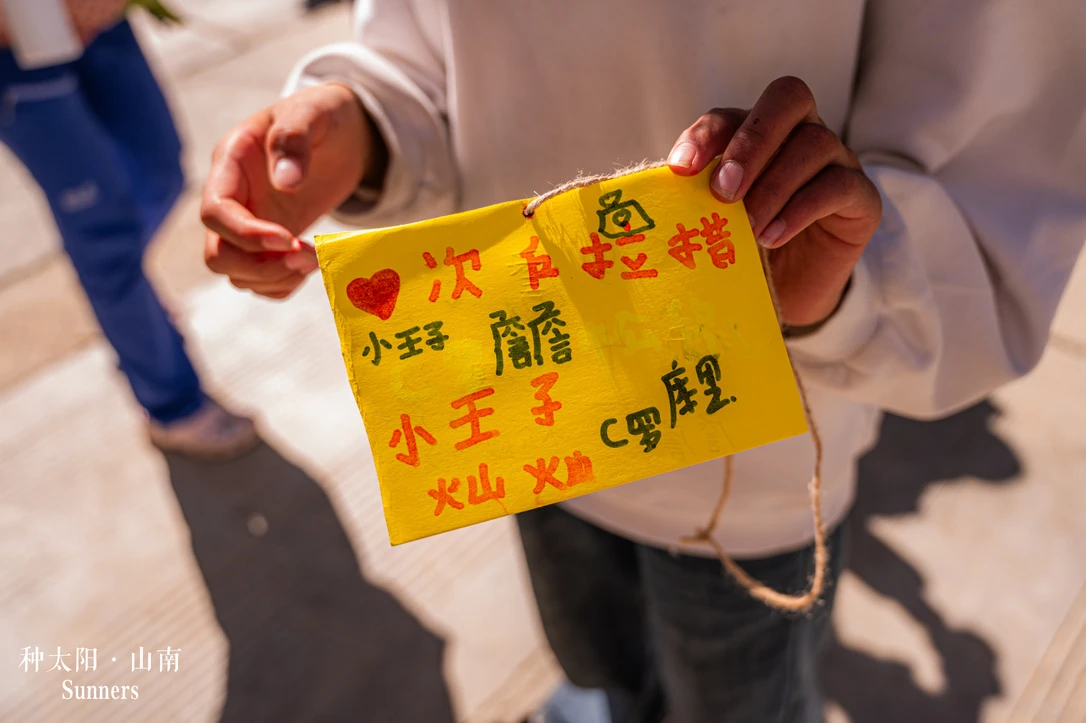 次 拉措
小王子 詹詹
小王子
C罗 库里
火山 火山
种太阳·山南
Sunners